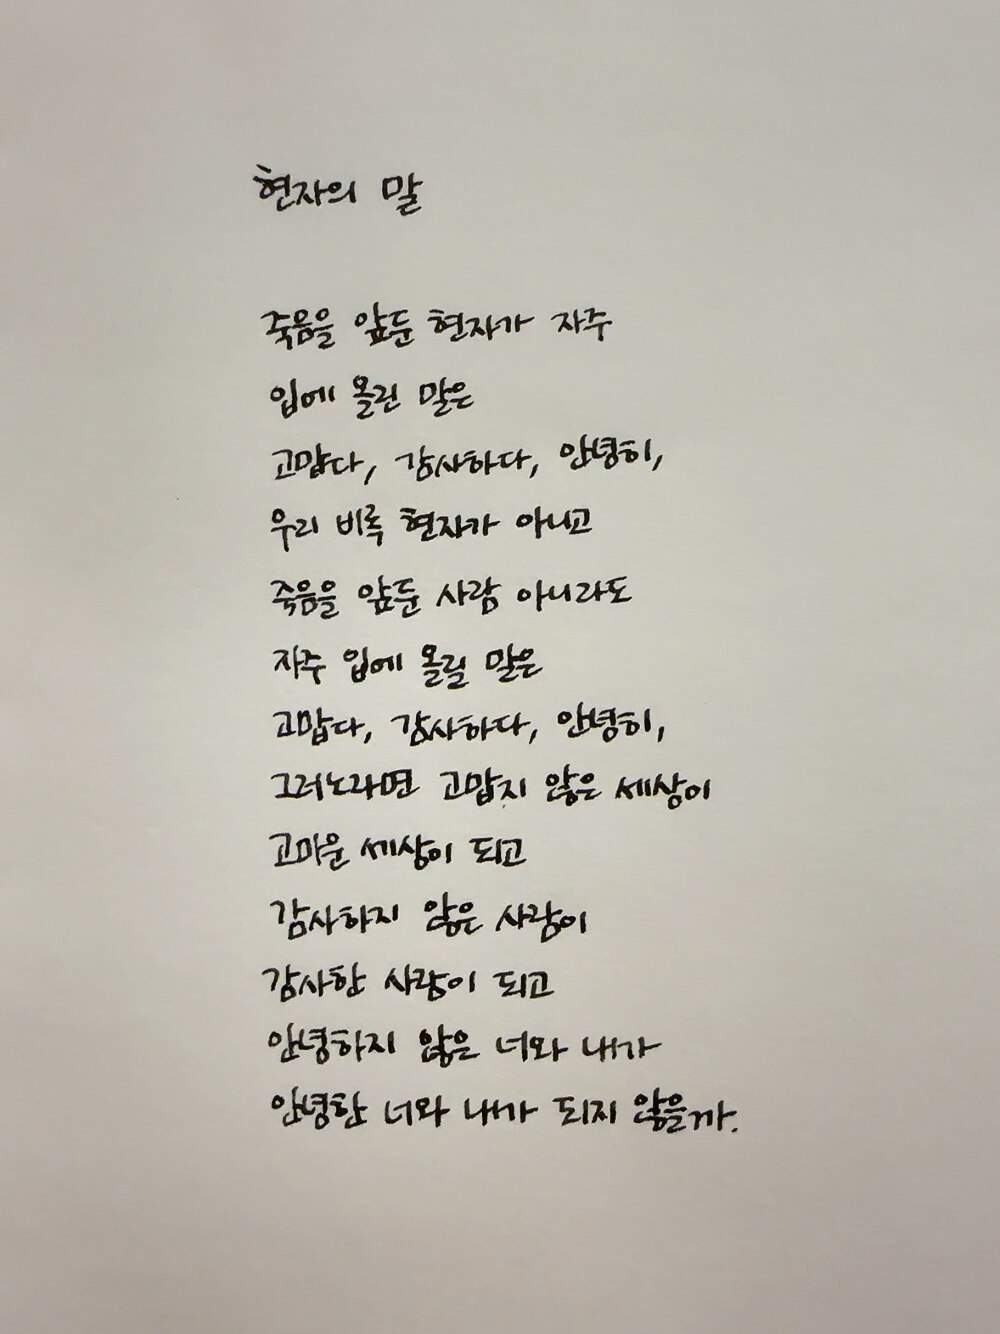 현자의 말
죽음을 앞둔 현자가 자주
입에 올린 말은
고맙다, 감사하다, 안녕히,
우리 비록 현자가 아니고
죽음을 앞둔 사람 아니라도
자주 입에 올릴 말은
고맙다, 감사하다, 안녕히,
그러노라면 고맙지 않은 세상이
고마운 세상이 되고
감사하지 않은 사람이
감사한 사람이 되고
안녕하지 않은 너와 내가
안녕한 너와 내가 되지 않을까.